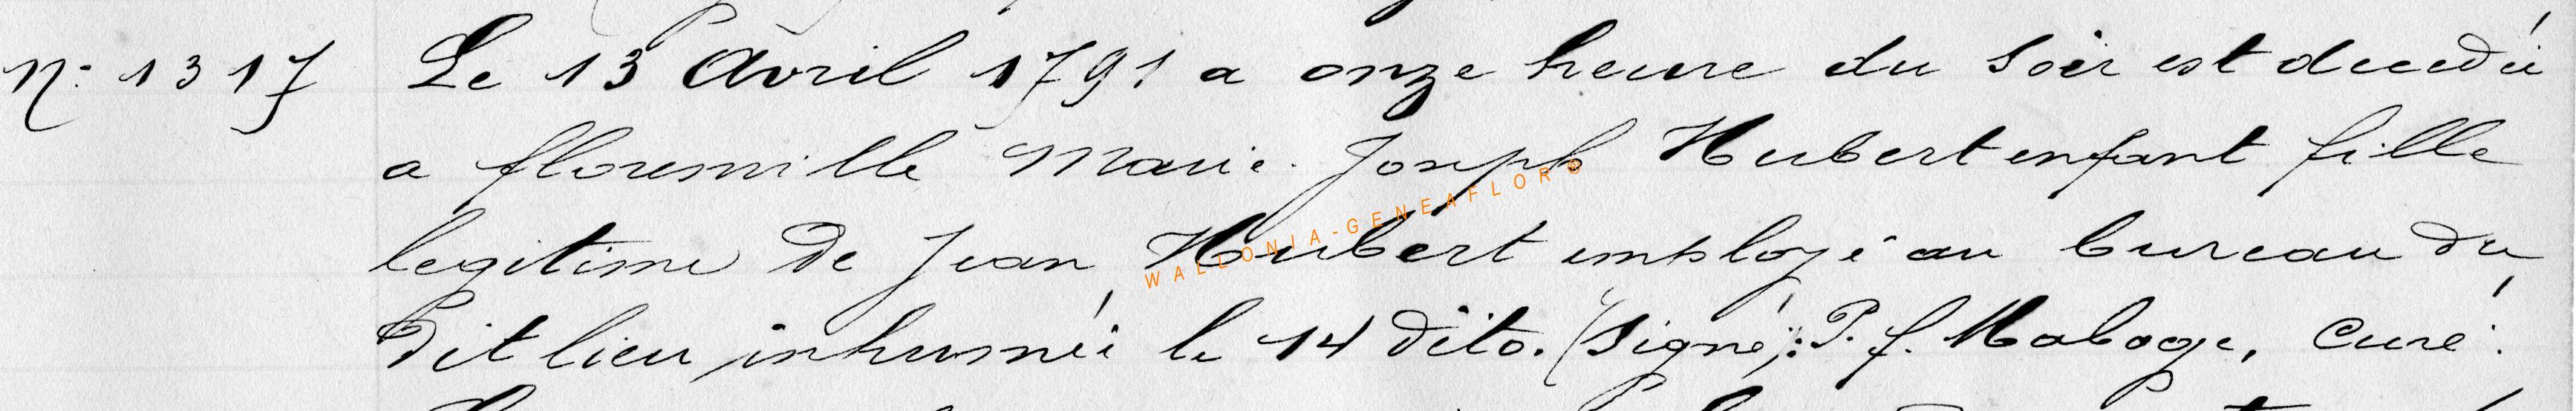 N° 1317 Le 13 Avril 1791 a onze heure du Soir est decedée
a florenville Marie-Joseph Hubert enfant fille
legitime de Jean Hubert employé au bureau du
dit lieu inhumée le 14 dito. (Signé): P. f. Maboge, Curé.
WALLONIA-GENEAFLOR®